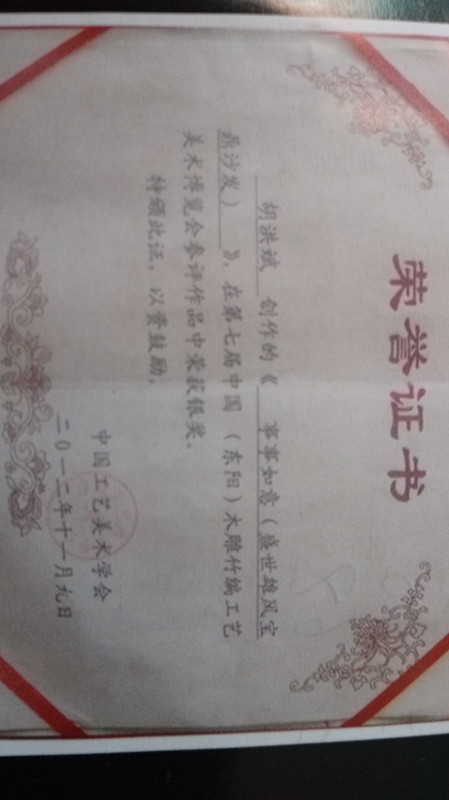 荣誉证书
胡洪斌 创作的《 事事如意(盛世雄风宝
鼎沙发) 》,在第七届中国(东阳)木雕竹编工艺
美术博览会参评作品中荣获银奖。
特颁此证,以资鼓励。
中国工艺美术学会
二〇一二年十一月九日